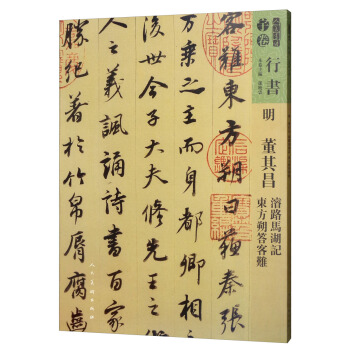 十卷
行書
明
董其昌
濬路馬湖記
東方朔答客難
客難東方朔曰蘇秦張
萬乘之主而身都卿相
後世今子大夫修先王
之義諷誦詩書百家
勝紀著於竹帛脣腐齒
人民美術出版社